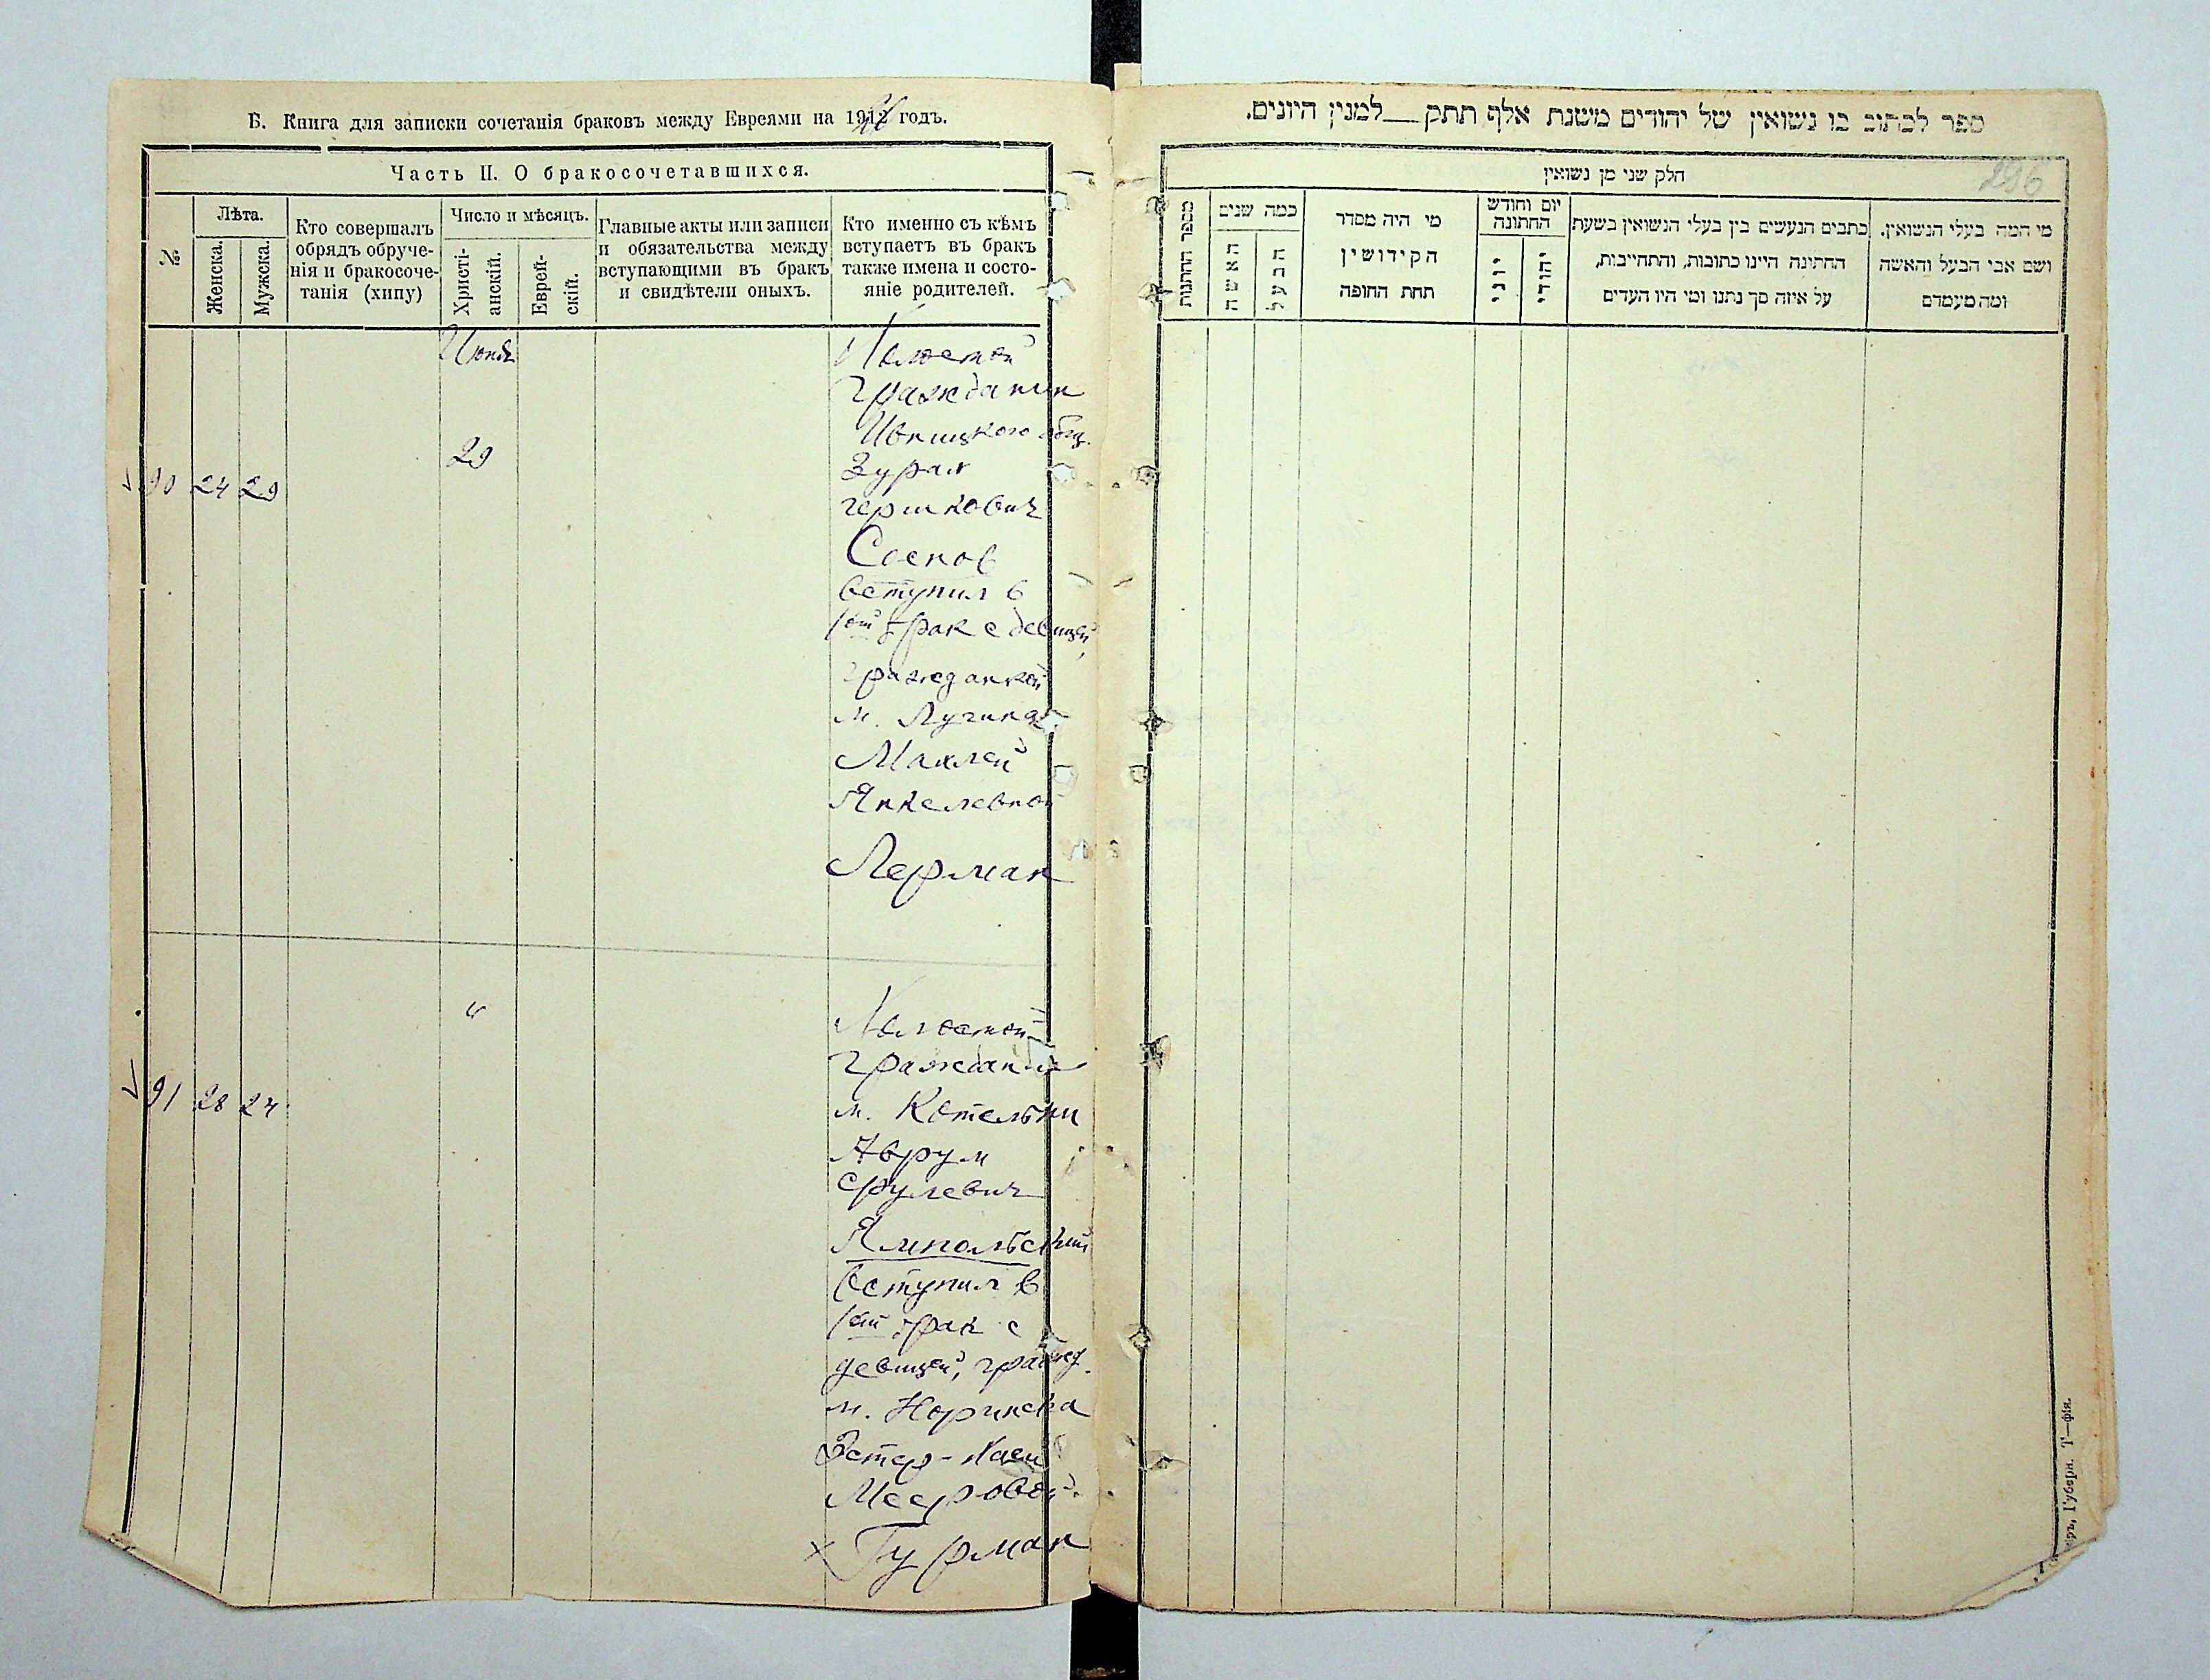 Б. Книга для записки сочетанія браковъ между Евреями на 19 годъ.
Часть II. О бракосочетавшихся.
№
Лѣта.
Женска.
Мужска.
Кто совершалъ
обрядъ обруче-
нія и бракосоче-
танія (хипу)
Число и мѣсяцъ.
Христі-
анскій.
Еврей-
скій.
Главные акты или записи
и обязательства между
вступающими въ бракъ
и свидѣтели оныхъ.
Кто именно съ кѣмъ
вступаетъ въ бракъ
также имена и состо-
яніе родителей.
Июнь
Холостой
Гражданин
Ивницкого общ.
29
90 24 29
Гершкович
Соснов
вступил в
1ый брак с девицей,
гражданкой
м. Лугина
Маклей
Янкелевной
Лерман
"
Холостой
Гражданин
91 28 24
м. Котельни
Аврум
Срулевич
Ямпольский
вступил в
1ый брак с
девицей, гражд.
м. Норинска
Эстер-Хаей
Мееровой
× Гурман
ספר לכתוב בו נשואין של יהודים משנת אלף תתק__למנין היונים.
296
חלק שני מן נשואין
מספר החתונות
כמה שנים
האשה
הבעל
מי היה מסדר
הקידושין
תחת החופה
יום וחודש
החתונה
יוני
יהודי
כתבים הנעשים בין בעלי הנשואין בשעת
החתינה היינו כתובות, והתחייבות,
על איזה סך נתנו ומי היו העדים
מי המה בעלי הנשואין.
ושם אבי הבעל והאשה
ומה מעמדם
Губерн. Т—фія.